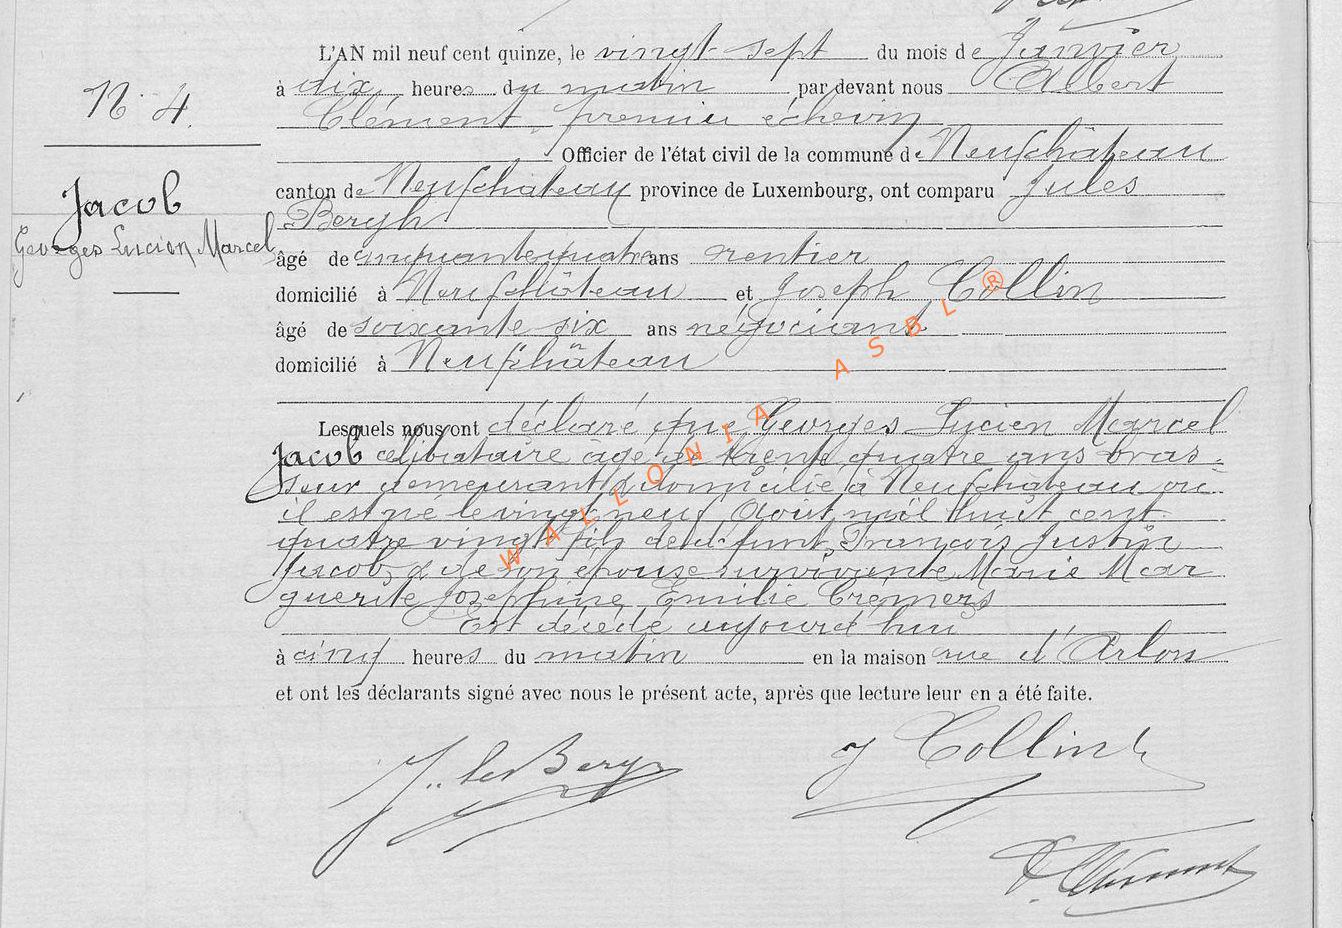 L'AN mil neuf cent quinze, le vingt-sept du mois de Janvier
à dix heures du matin par devant nous Albert
N. 4.
Clément, premier échevin
Officier de l'état civil de la commune de Neufchâteau
canton de Neufchâteau province de Luxembourg, ont comparu Jules
Jacob
Georges Lucien Marcel
Bergh
âgé de cinquante quatre ans rentier
domicilié à Neufchâteau et Joseph Collin
âgé de soixante six ans négociant
domicilié à Neufchâteau
Lesquels nous ont déclaré que Georges Lucien Marcel
Jacob célibataire âgé de trente quatre ans bras-
seur demeurant & domicilié à Neufchâteau où
il est né le vingt neuf Août mil huit cent
quatre vingt fils de défunt François Justin
Jacob, & de son épouse survivante Marie Mar
guerite Josephine Emilie Cremers
Est décédé aujourd'hui
à cinq heures du matin en la maison rue d'Arlon
et ont les déclarants signé avec nous le présent acte, après que lecture leur en a été faite.
J. Collin
A. Clément
WALLONIA ASBL ®